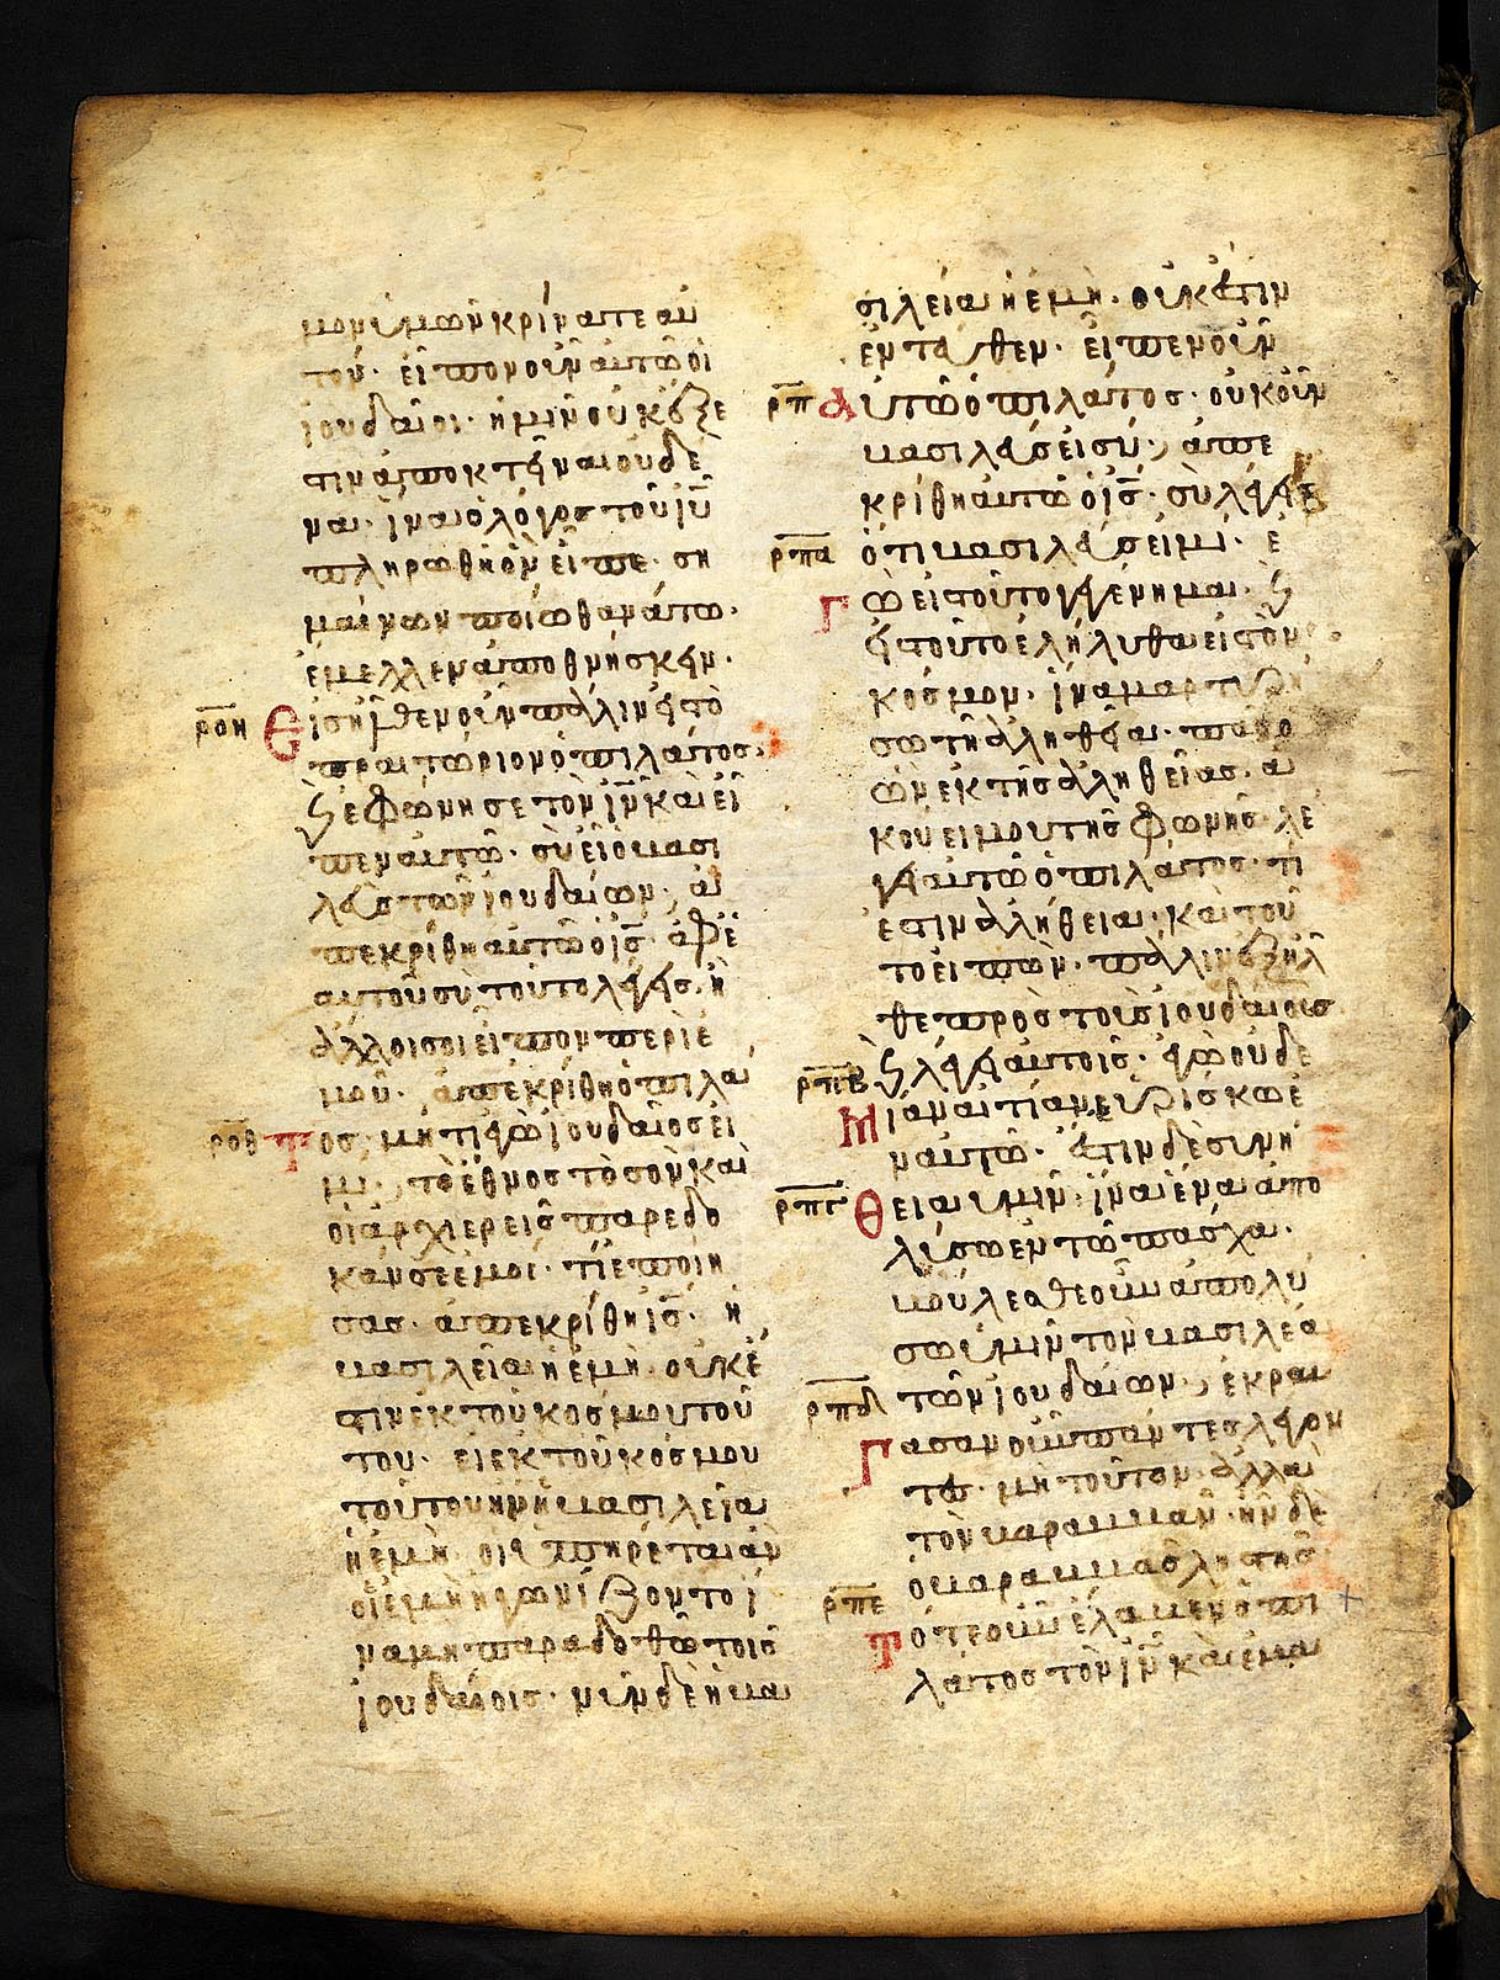 μον ὑμῶν κρίνατε αυ
τόν· εἶπον οὖν αὐτῶ οἱ
ἰουδαῖοι· ἡμῖν οὐκ ἔξε
στιν ἀποκτεῖναι οὐδέ
να· ἵνα ὁ λόγος τοῦ ἰῦ
πληρωθῆ ὃν εἶπε· ση
μαίνων ποίω θανάτω·
ἔμελλεν ἀποθνήσκειν·
ροη Εἰσῆλθεν οὖν πάλιν εἰς τὸ
πραιτώριον ὁ πιλάτος·
ϛ ἐφώνησε τὸν ἰν καὶ εἶ
πεν αὐτῶ· σὺ εἶ ὁ βασι
λεὺς τῶν ἰουδαίων; ἀ
πεκρίθη αὐτῶ ὁ ις· ἀφ ἑ
αυτοῦ σὺ τοῦτο λέγεις· ἢ
ἄλλοι σοι εἶπον περὶ ἐ
μοῦ· ἀπεκρίθη ὁ πιλα
ροθ Τος· μήτι ἐγὼ ἰουδαῖος εἰ
μι; τὸ ἔθνος τὸ σὸν καὶ
οἱ ἀρχιερεῖς παρέδω
κάν σε ἐμοί· τί ἐποίη
σας· ἀπεκρίθη ις· ἡ
βασιλεία ἡ ἐμὴ οὐκ ἔ
στιν ἐκ τοῦ κόσμου τού
του· εἰ ἐκ τοῦ κόσμου
τούτου ἦν ἡ βασιλεία
ἡ ἐμὴ οἱ ὑπηρέται ἂν
οἱ ἐμοὶ ἠγωνίζοντο ἵ
να μὴ παραδοθῶ τοῖς
ἰουδαίοις· νῦν δὲ ἡ βα
σιλεία ἡ ἐμὴ· οὐκ ἔστιν
ἐντεῦθεν· εἶπεν οὖν
ρπ Αὐτῶ ὁ πιλάτος· οὐκοῦν
βασιλεὺς εἶ σύ; ἀπε
κρίθη αὐτῶ ὁ ις· σὺ λέγεις
ρπα ὅτι βασιλεύς εἰμι· ἐ
Γὼ εἰς τοῦτο γεγένημαι· ϛ
εἰς τοῦτο ἐλήλυθα εἰς τὸν
κόσμον· ἵνα μαρτυρή
σω τῆ ἀληθεία· πᾶς ὁ
ὢν ἐκ τῆς ἀληθείας· ἀ
κούει μου τῆς φωνῆς· λέ
γει αὐτῶ ὁ πιλάτος· τί
ἐστιν ἀλήθεια; καὶ τοῦ
το εἰπὼν· πάλιν ἐξῆλ
θε πρὸς τοὺς ἰουδαίους
ρπβ ϛ λέγει αὐτοῖς· ἐγὼ οὐδε
Μίαν αἰτίαν εὑρίσκω ἐ
ν αὐτῶ· ἔστιν δὲ συνή
ρπγ Θεια ὑμῖν· ἵνα ἕνα ἀπο
λύσω ἐν τῶ πάσχα·
βούλεσθε οὖν ἀπολύ
σω ὑμῖν τὸν βασιλέα
ρπδ τῶν ἰουδαίων; ἐκραύ
Γασαν οὖν πάντες λέγον
τες· μὴ τοῦτον ἀλλὰ
τὸν βαραββᾶν· ἦν δὲ
ὁ βαραββᾶς λῃστής·
ρπε Τότε οὖν ἔλαβεν ὁ πι
λάτος τὸν ἰν καὶ ἐμα